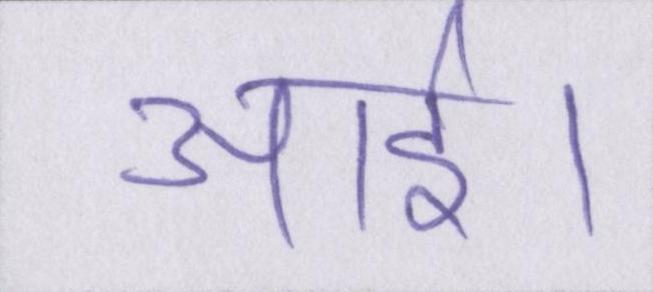 आई।